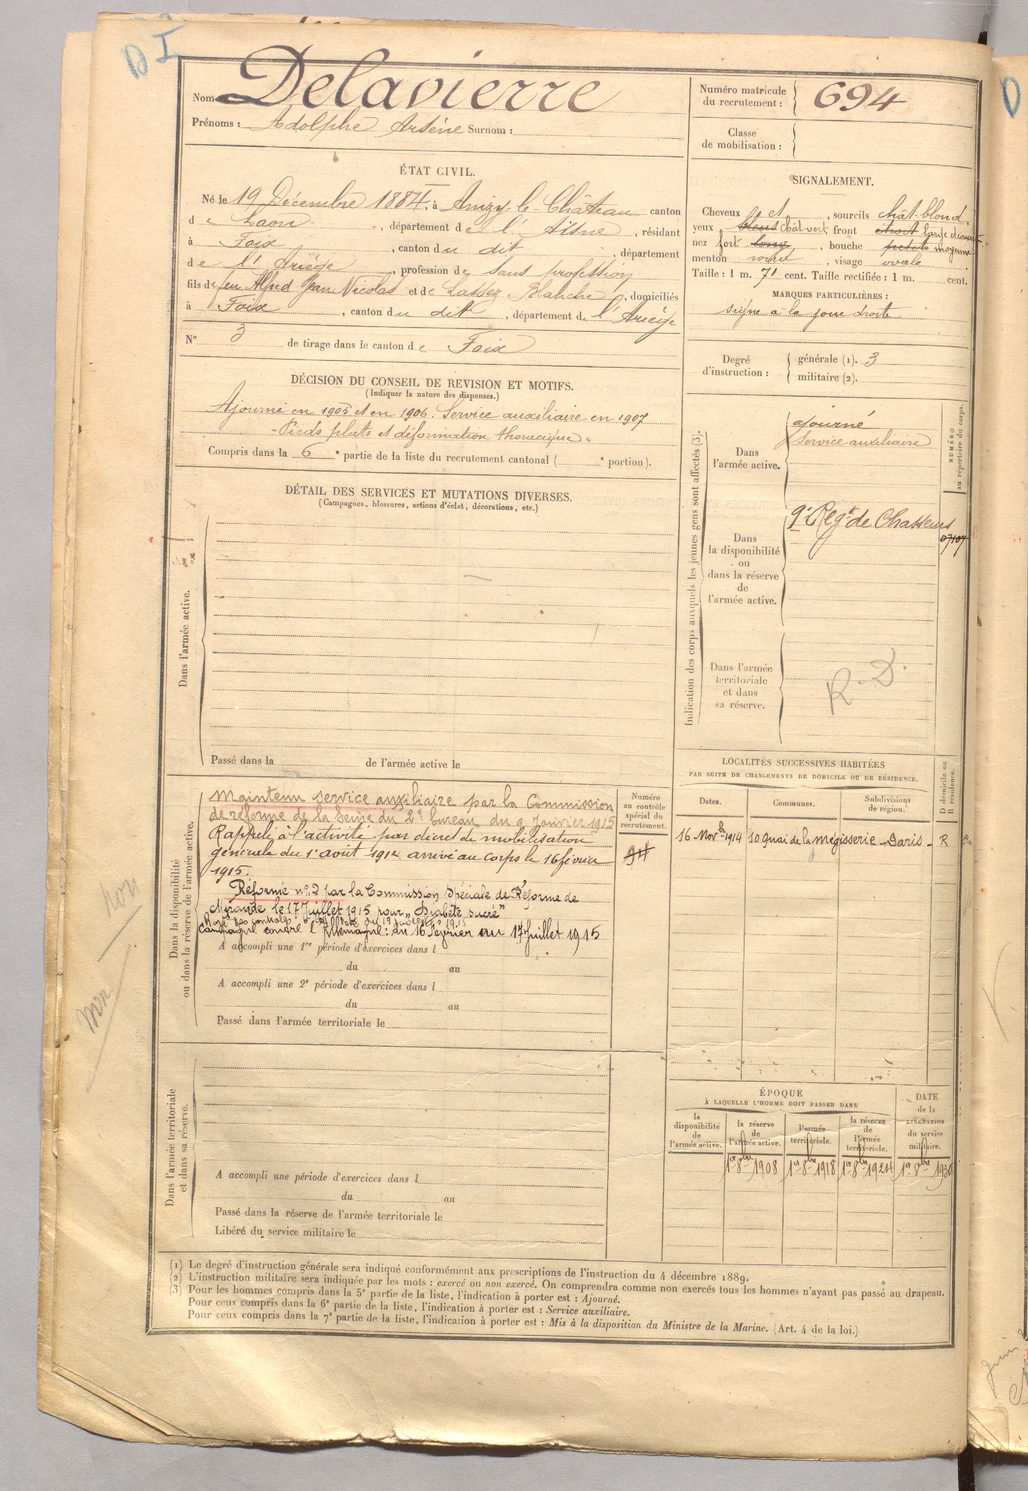 D I
Nom Delavierre
Prénoms : Adolphe Arsène Surnom :
Numéro matricule du recrutement : 694
Classe de mobilisation :
ÉTAT CIVIL.
Né le 19 Décembre 1884, à Anizy-le-Château canton
de Laon, département de l'Aisne, résidant
à Foix, canton du dit, département
de l'Ariège, profession de sans profession
fils de feu Alfred Jean Nicolas et de Blanche, domiciliés
à Foix, canton du dit, département de l'Ariège
N° 3 de tirage dans le canton de Foix
SIGNALEMENT.
Cheveux et, sourcils chât-blond
yeux bleus chât vert front étroit large
nez fort long, bouche petite moyenne
menton rond, visage ovale
Taille : 1 m. 71 cent. Taille rectifiée : 1 m. cent.
MARQUES PARTICULIÈRES :
signe à la joue droite
Degré d'instruction : générale (1). 3
militaire (2).
DÉCISION DU CONSEIL DE REVISION ET MOTIFS.
(Indiquer la nature des dispenses.)
Ajourné en 1905 et en 1906. Service auxiliaire en 1907
- Pieds plats et déformation thoracique.
Compris dans la 6e partie de la liste du recrutement cantonal ( e portion).
DÉTAIL DES SERVICES ET MUTATIONS DIVERSES.
(Campagnes, blessures, actions d'éclat, décorations, etc.)
Dans l'armée active.
Passé dans la de l'armée active le
Indication des corps auxquels les jeunes gens sont affectés (3).
NUMÉRO au répertoire du corps.
Dans l'armée active.
ajourné
Service auxiliaire
Dans la disponibilité ou dans la réserve de l'armée active.
9e Regt de Chasseurs
07107
Dans l'armée territoriale et dans sa réserve.
R. D.
Dans la disponibilité ou dans la réserve de l'armée active.
Maintenu service auxiliaire par la Commission
de réforme de la Seine du 2e bureau du 9 Janvier 1915
Rappelé à l'activité par décret de mobilisation
générale du 1er août 1914 arrivé au corps le 16 février
1915.
Réformé n° 2 par la Commission Spéciale de Réforme de
Mirande le 17 Juillet 1915 pour "Diabète sucré"
Campagne contre l'Allemagne : du 16 Février au 17 Juillet 1915
A accompli une 1re période d'exercices dans l
du au
A accompli une 2e période d'exercices dans l
du au
Passé dans l'armée territoriale le
Numéro au contrôle spécial du recrutement.
non
LOCALITÉS SUCCESSIVES HABITÉES
PAR SUITE DE CHANGEMENTS DE DOMICILE OU DE RÉSIDENCE.
Dates. Communes. Subdivisions de région. D domicile ou R résidence.
16 Novbre 1914 10 Quai de la Mégisserie - Paris - R
Dans l'armée territoriale et dans sa réserve.
A accompli une période d'exercices dans l
du au
Passé dans la réserve de l'armée territoriale le
Libéré du service militaire le
ÉPOQUE
À LAQUELLE L'HOMME DOIT PASSER DANS
la disponibilité de l'armée active. la réserve de l'armée active. l'armée territoriale. la réserve de l'armée territoriale. DATE de la LIBÉRATION du service militaire.
1er 8bre 1908 1er 8bre 1918 1er 8bre 1924 1er 8bre 1930
(1) Le degré d'instruction générale sera indiqué conformément aux prescriptions de l'instruction du 4 décembre 1889.
(2) L'instruction militaire sera indiquée par les mots : exercé ou non exercé. On comprendra comme non exercés tous les hommes n'ayant pas passé au drapeau.
(3) Pour les hommes compris dans la 5e partie de la liste, l'indication à porter est : Ajourné.
Pour ceux compris dans la 6e partie de la liste, l'indication à porter est : Service auxiliaire.
Pour ceux compris dans la 7e partie de la liste, l'indication à porter est : Mis à la disposition du Ministre de la Marine. (Art. 4 de la loi.)